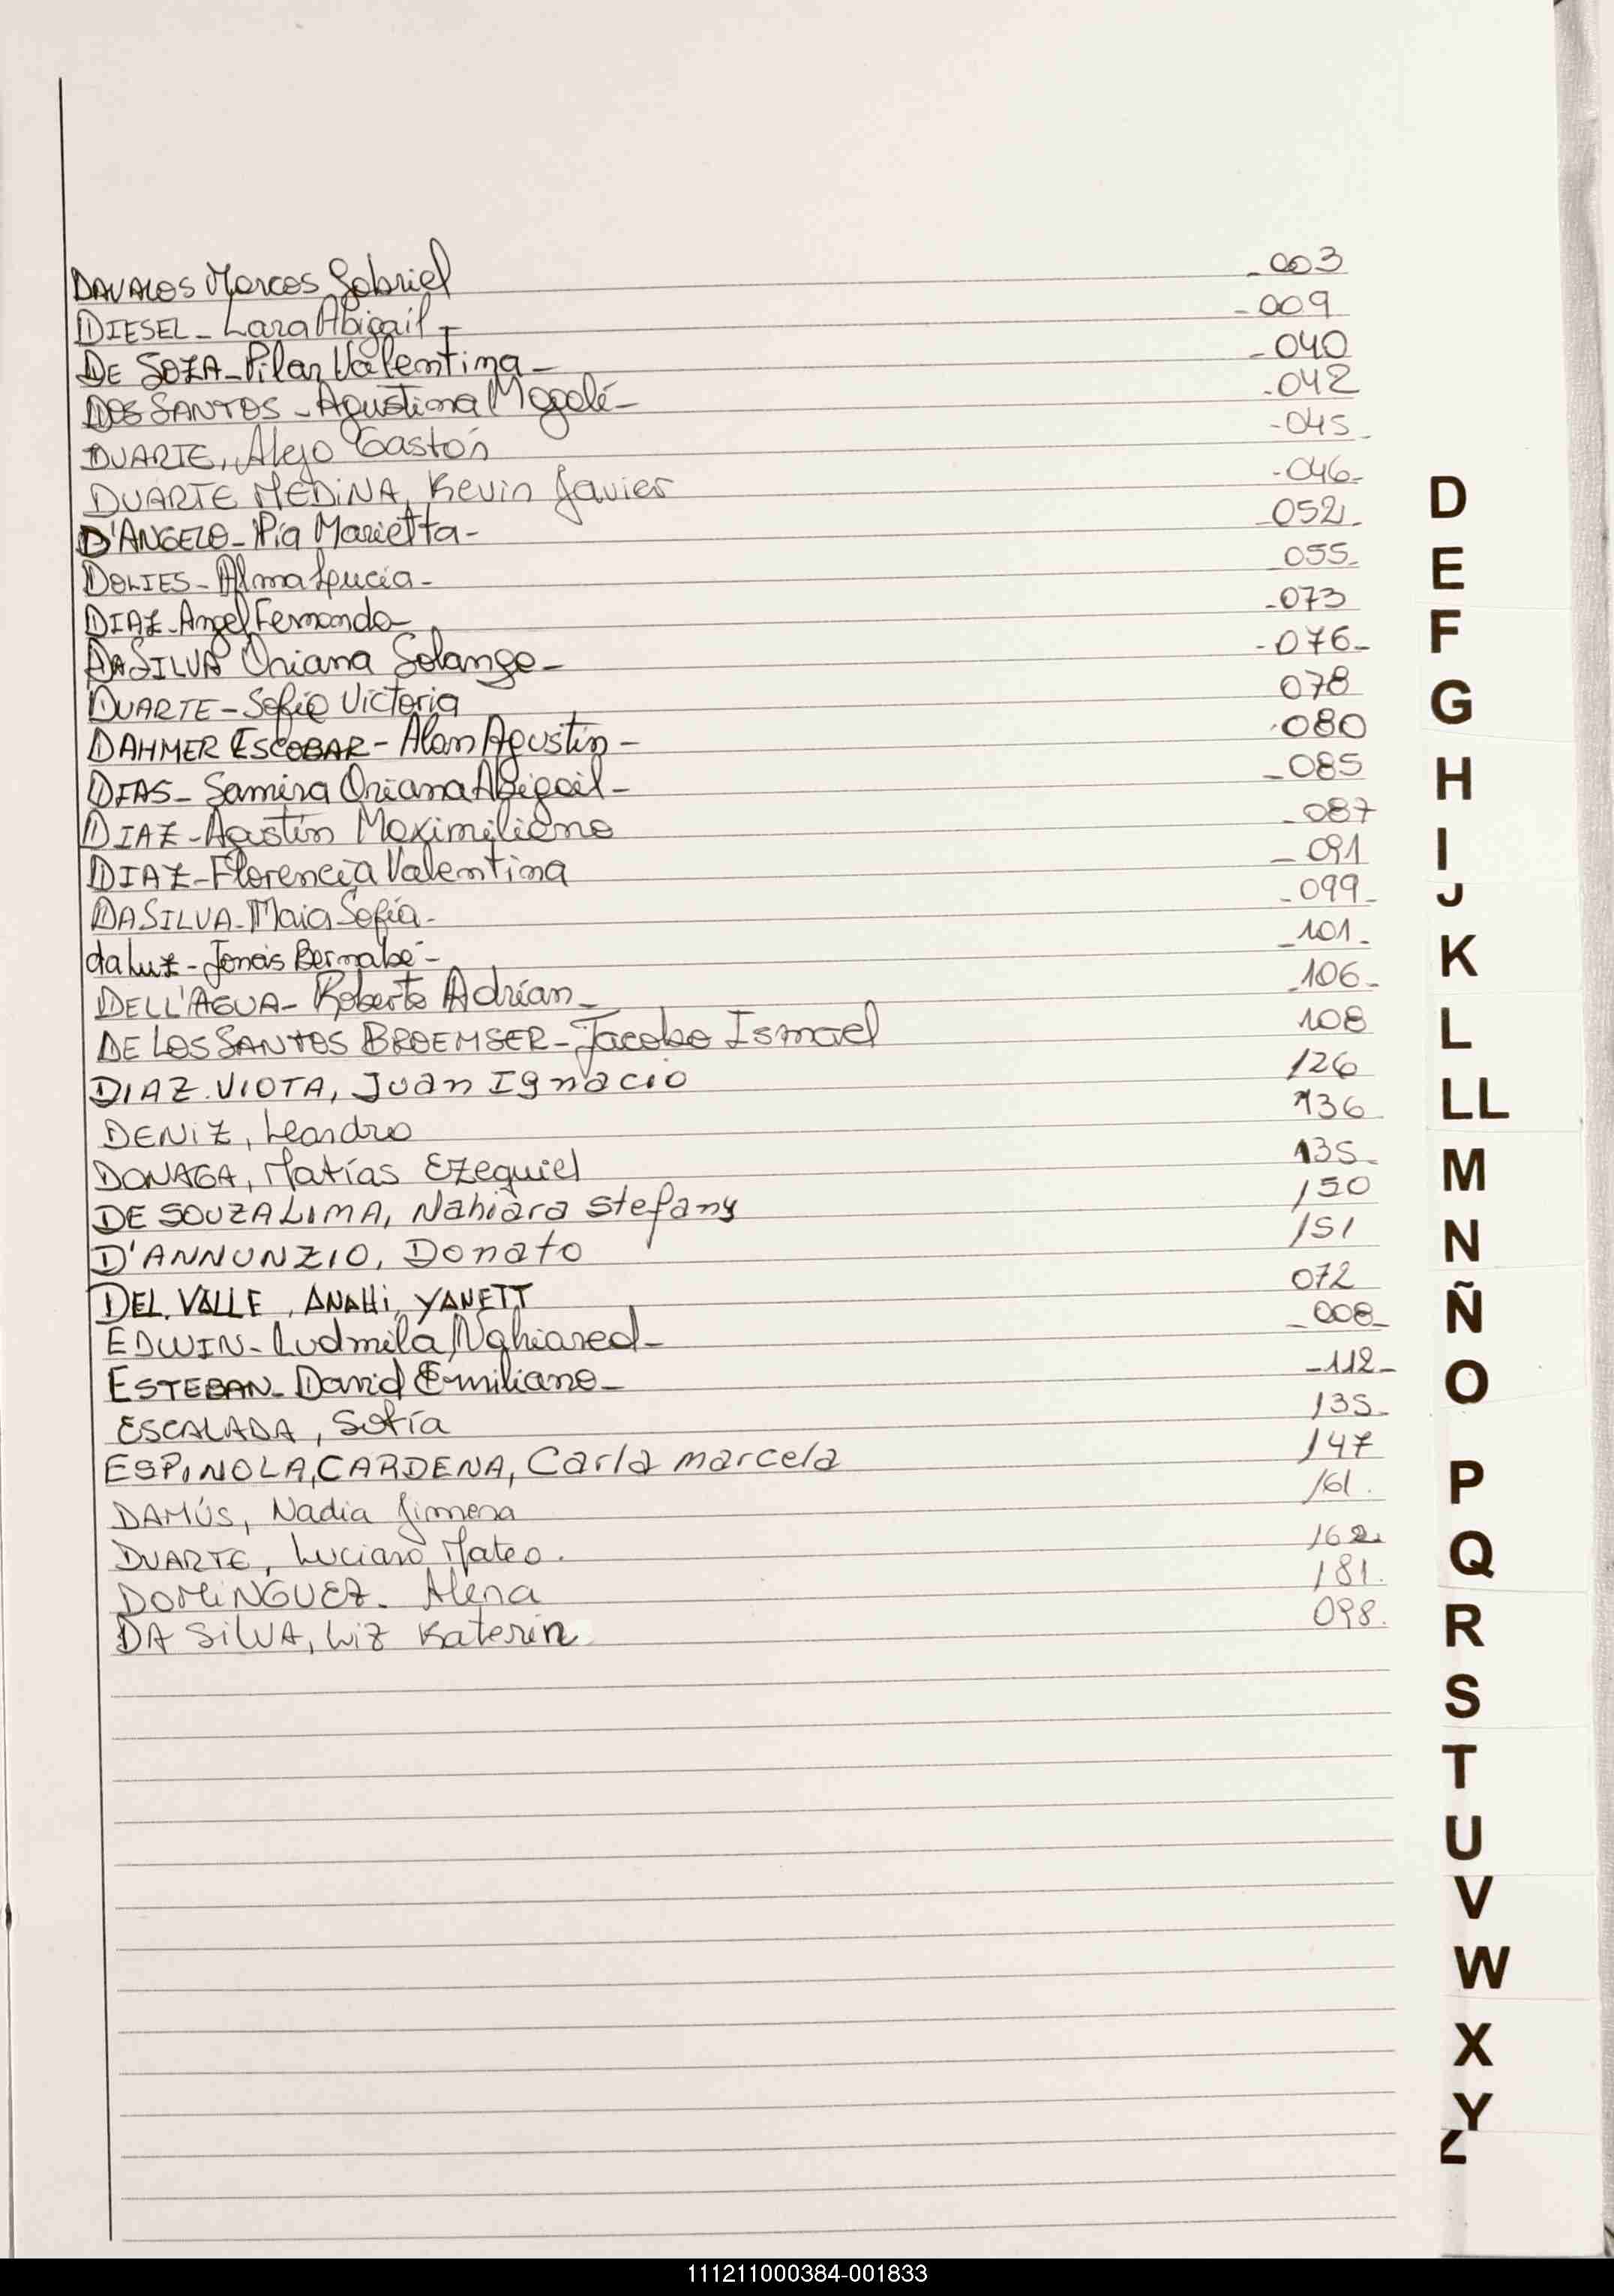 DAVALOS Marcos Gabriel _003
DIESEL - Lara Abigail - -009
DE SOZA - Pilar Valentina - -040
DOS SANTOS - Agustina Magalí - -042
DUARTE, Alejo Gastón -045-
DUARTE MEDINA, Kevin Javier -046-
D'ANGELO - Pía Marietta - -052-
DOLIES - Alma Lucía - -055-
DIAZ - Angel Fernando -073
DA SILVA Oriana Solange - -076-
DUARTE - Sofía Victoria 078
DAHMER ESCOBAR - Alan Agustín - -080
DIAS - Samira Oriana Abigail - -085
DIAZ - Agustín Maximiliano -087
DIAZ - Florencia Valentina -091
DA SILVA - Maia Sofía - -099-
da Luz - Jonás Bernabé - -101-
DELL'AGUA - Roberto Adrían - -106-
DE LOS SANTOS BROEMSER - Jacobo Ismael 108
DIAZ VIOTA, Juan Ignacio 126
DENIZ, Leandro 136
DONAGA, Matías Ezequiel 135-
DE SOUZA LIMA, Nahiara Stefany 150
D'ANNUNZIO, Donato 151
DEL VALLE, ANAHI, YANETT 072
EDWIN - Ludmila Nahiared - -008-
ESTEBAN - David Emiliano - -112-
ESCALADA, Sofía 135-
ESPINOLA, CARDENA, Carla marcela 147
DAMÚS, Nadia Jimena 161.
DUARTE, Luciano Mateo. 162.
DOMINGUEZ. Alena 181.
DA SILVA, Liz Katerin 098.
D
E
F
G
H
I
J
K
L
LL
M
N
Ñ
O
P
Q
R
S
T
U
V
W
X
Y
Z
111211000384-001833